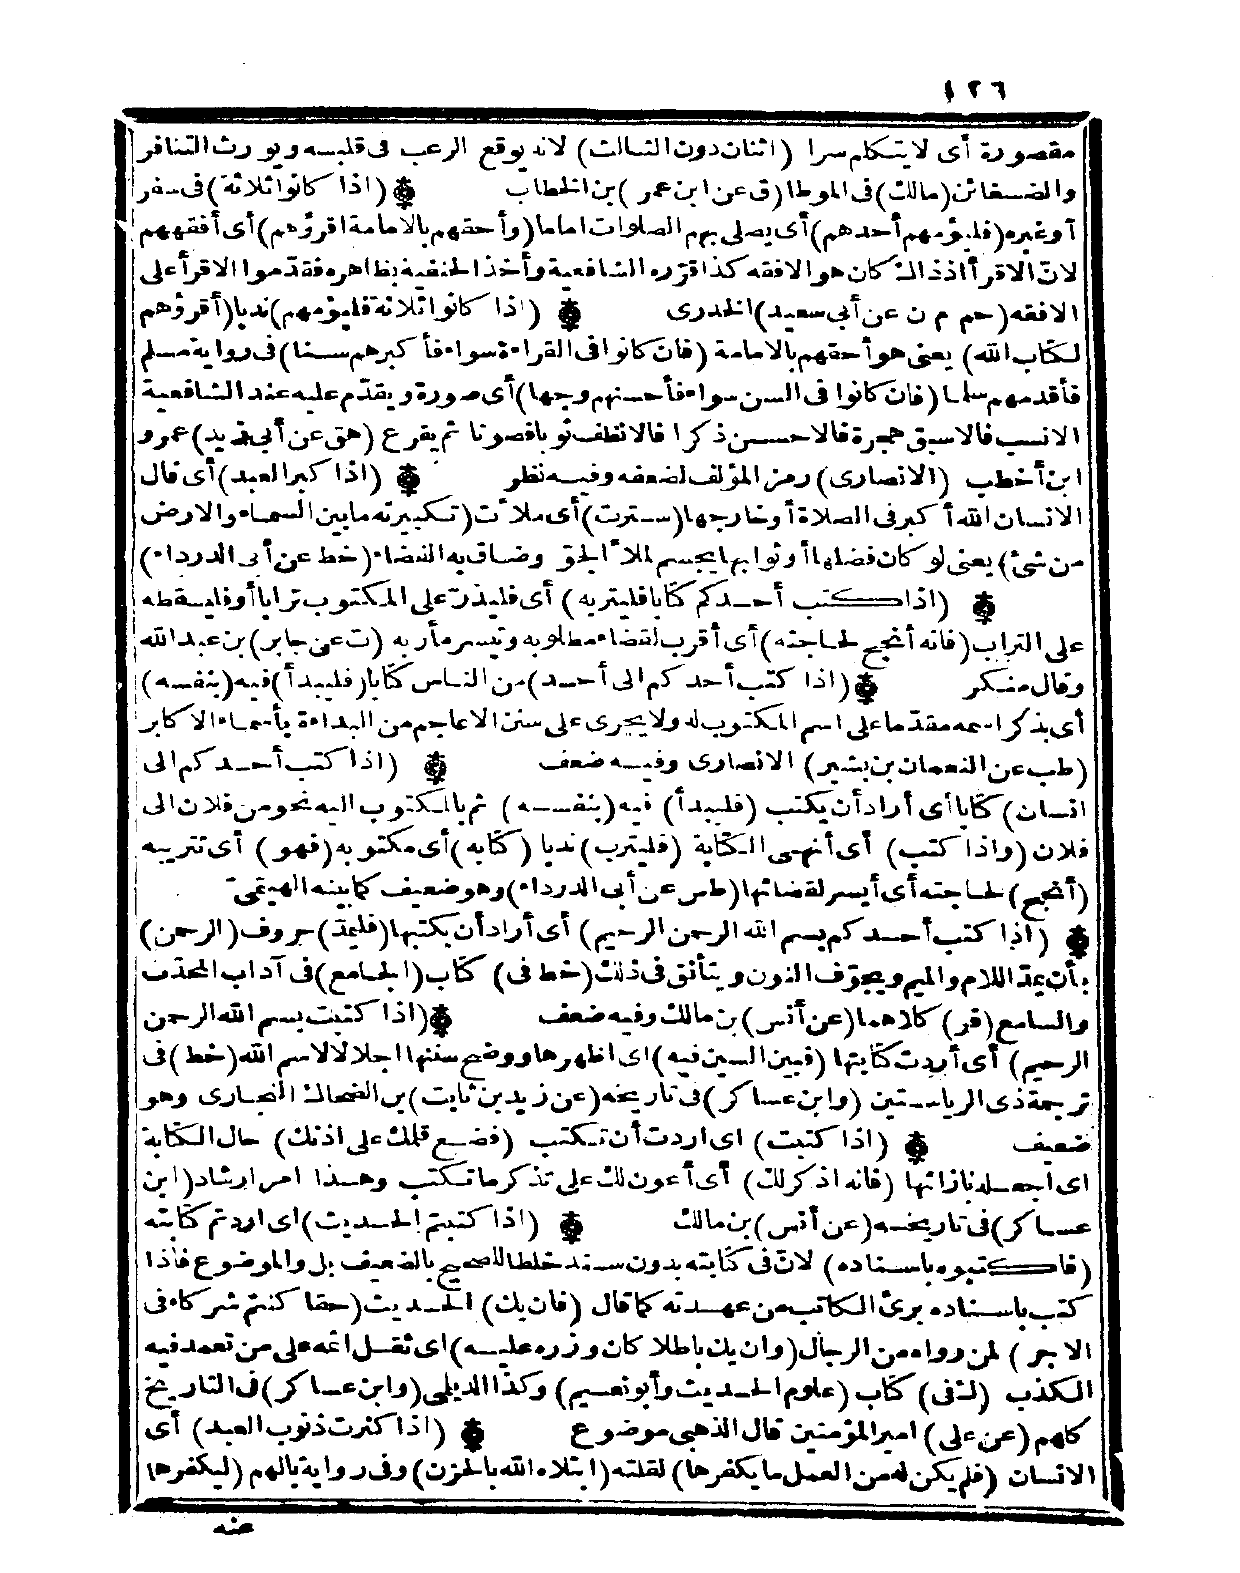 ١٢٦
مقصورة أى لا يتكلم سرا (اثنان دون الثالث) لانه يوقع الرعب فى قلبه ويورث التنافر
والضغائن (مالك) فى الموطا (ق عن ابن عمر) بن الخطاب (اذا كانوا ثلاثة) فى سفر
أو غيره (فليؤمهم أحدهم) أى يصلى بهم الصلوات اماما (وأحقهم بالامامة اقرؤهم) أى أفقههم
لانّ الاقرأ اذذاك كان هو الافقه كذا قرّره الشافعية وأخذ الحنفية بظاهره فقدّموا الاقرأ على
الافقه (حم م ن عن أبى سعيد) الخدرى (اذا كانوا ثلاثة فليؤمهم) ندبا (أقرؤهم
لكتاب الله) يعنى هو أحقهم بالامامة (فان كانوا فى القراءة سواء فأكبرهم سنا) فى رواية مسلم
فأقدمهم سلما (فان كانوا فى السن سواء فأحسنهم وجها) أى صورة ويقدّم عليه عند الشافعية
الانسب فالاسبق هجرة فالاحسن ذكرا فالانظف ثوبا فصوتا ثم يقرع (هق عن أبى زيد) عمرو
ابن أخطب (الانصارى) رمز المؤلف لضعفه وفيه نظر (اذا كبر العبد) أى قال
الانسان الله أكبر فى الصلاة أو خارجها (سترت) أى ملأت (تكبيرته ما بين السماء والارض
من شئ) يعنى لو كان فضلها أو ثوابها يجسم لملأ الجوّ وضاق به الفضاء (خط عن أبى الدرداء)
(اذا كتب أحدكم كتابا فليتربه) أى فليذرّ على المكتوب ترابا أو فليسقطه
على التراب (فانه أنجح لحاجته) أى أقرب لقضاء مطلوبه وتيسر مأربه (ت عن جابر) بن عبد الله
وقال منكر (اذا كتب أحدكم الى أحد) من الناس كتابا (فليبدأ) فيه (بنفسه)
أى بذكر اسمه مقدّما على اسم المكتوب له ولا يجرى على سنن الاعاجم من البداءة بأسماء الاكابر
(طب عن النعمان بن بشير) الانصارى وفيه ضعف (اذا كتب أحدكم الى
انسان) كتابا أى أراد أن يكتب (فليبدأ) فيه (بنفسه) ثم بالمكتوب اليه نحو من فلان الى
فلان (واذا كتب) أى أنهى الكتابة (فليترب) ندبا (كتابه) أى مكتوبه (فهو) أى تتريبه
(أنجح) لحاجته أى أيسر لقضائها (طس عن أبى الدرداء) وهو ضعيف كما بينه الهيتمى
(اذا كتب أحدكم بسم الله الرحمن الرحيم) أى أراد أن يكتبها (فليمدّ) حروف (الرحمن)
بأن يمدّ اللام والميم ويجوّف النون ويتأنق فى ذلك (خط فى) كتاب (الجامع) فى آداب المحدّث
والسامع (فر) كلاهما (عن أنس) بن مالك وفيه ضعف (اذا كتبت بسم الله الرحمن
الرحيم) أى أردت كتابتها (فبين السين فيه) اى اظهرها ووضح سننها اجلالا لاسم الله (خط) فى
ترجمة ذى الرياستين (وابن عساكر) فى تاريخه (عن زيد بن ثابت) بن الضحاك النجارى وهو
ضعيف (اذا كتبت) اى اردت أن تكتب (فضع قلمك على اذنك) حال الكتابة
اى اجعله بازائها (فانه اذكر لك) أى أعون لك على تذكر ما تكتب وهذا امر ارشاد (ابن
عساكر) فى تاريخه (عن أنس) بن مالك (اذا كتبتم الحديث) اى اردتم كتابته
(فاكتبوه باسناده) لانّ فى كتابته بدون سند خلطا للصحيح بالضعيف بل والموضوع فاذا
كتب باسناده برئ الكاتب من عهدته كما قال (فان يك) الحديث (حقا كنتم شركاء فى
الاجر) لمن رواه من الرجال (وان يك باطلا كان وزره عليه) اى ثقل اثمه على من تعمد فيه
الكذب (ك فى) كتاب (علوم الحديث وأبو نعيم) وكذا الديلى (وابن عساكر) فى التاريخ
كلهم (عن على) امير المؤمنين قال الذهبى موضوع (اذا كثرت ذنوب العبد) أى
الانسان (فلم يكن له من العمل ما يكفرها) لقلته (ابتلاه الله بالحزن) وفى رواية بالهم (ليكفرها
عنه